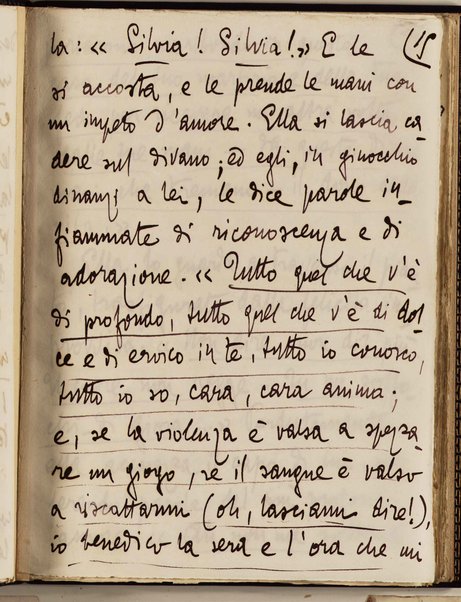 la: « Silvia! Silvia!» E le (15
si accosta, e le prende le mani con
un impeto d'amore. Ella si lascia ca
dere sul divano; ed egli, in ginocchio
dinanzi a lei, le dice parole in-
fiammate di riconoscenza e di
adorazione. « Tutto quel che v'è
di profondo, tutto quel che v'è di dol
ce e di eroico in te, tutto io conosco,
tutto io so, cara, cara anima;
e, se la violenza è valsa a spezza
re un giogo, se il sangue è valso
a riscattarmi (oh, lasciami dire!),
io benedico la sera e l'ora che mi